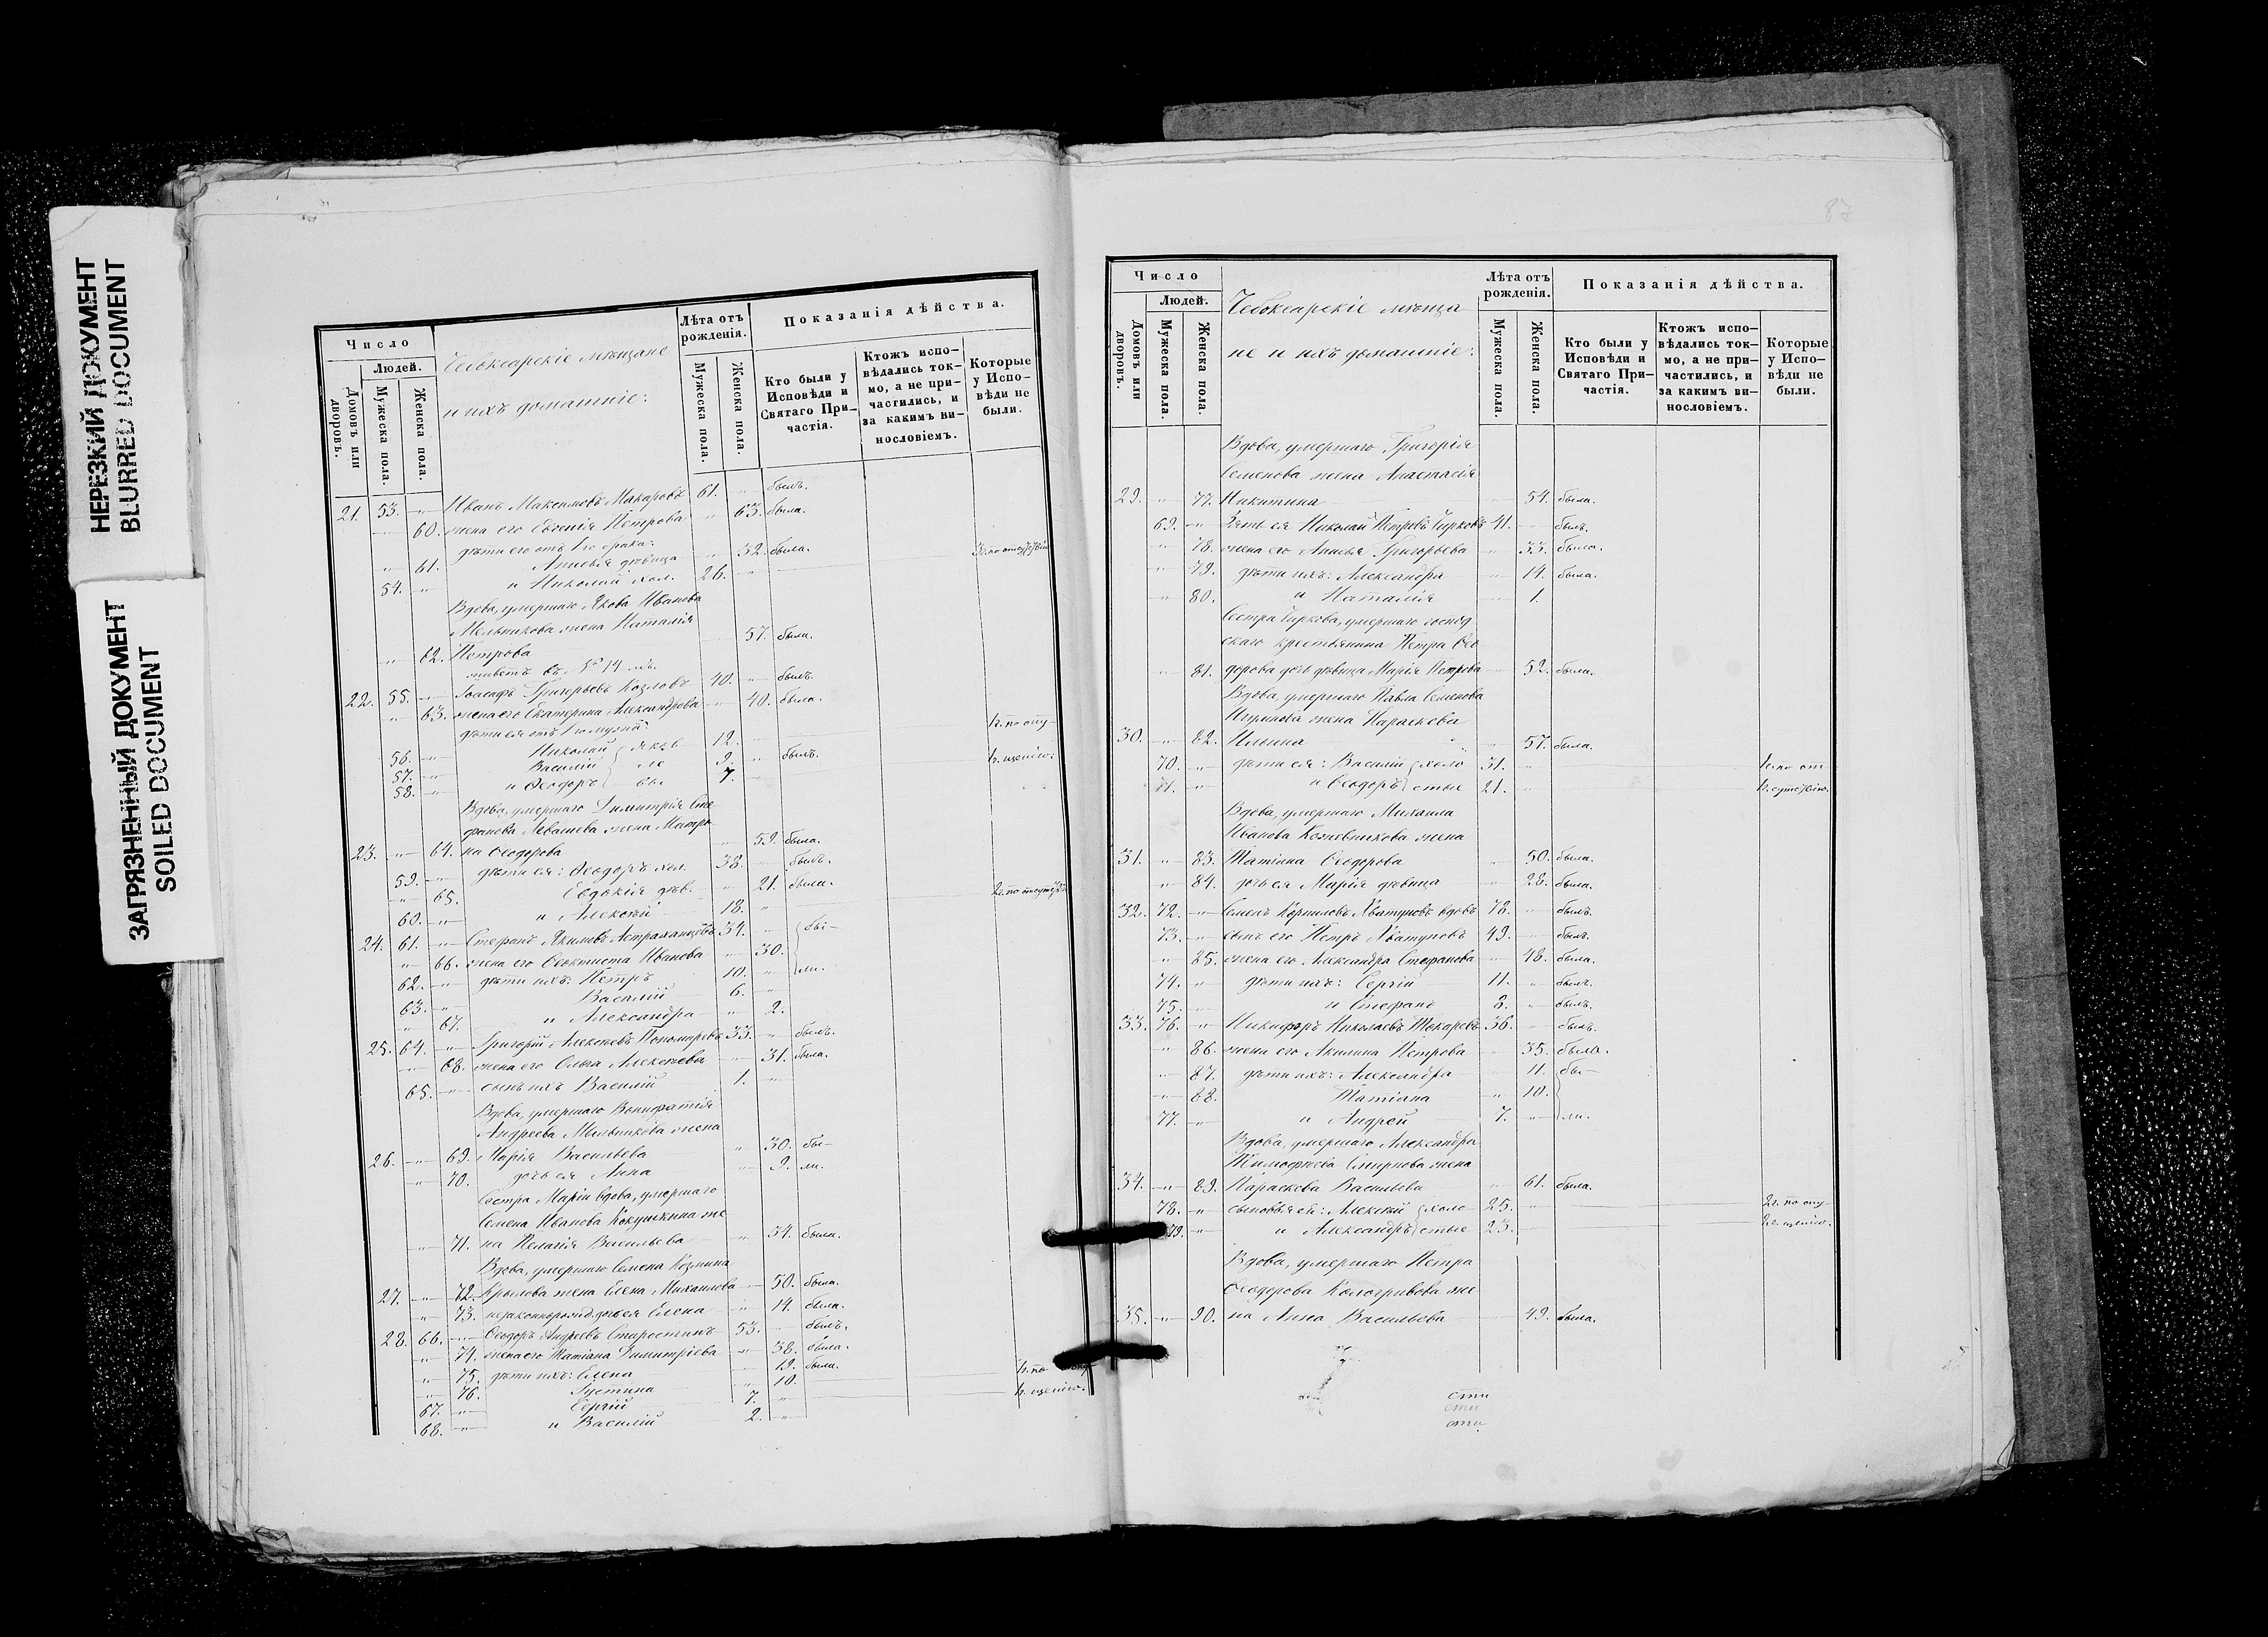 НЕРЕЗКИЙ ДОКУМЕНТ
BLURRED DOCUMENT
ЗАГРЯЗНЕННЫЙ ДОКУМЕНТ
SOILED DOCUMENT
Число
Людей.
Домовъ или дворовъ.
Мужеска пола.
Женска пола.
Чебоксарскіе мѣщане
и ихъ домашніе:
Лѣта отъ рожденія.
Мужеска пола.
Женска пола.
Показанія дѣйства.
Кто были у Исповѣди и Святаго Причастія.
Ктожъ исповѣдались токмо, а не причастились, и за какимъ винословіемъ.
Которые у Исповѣди не были.
21. 53. -"- Иванъ Максимовъ Макаровъ 61. былъ.
-"- 60. жена его Евгенія Петрова " 63. была.
дѣти его отъ 1го брака:
" 61. Анисья дѣвица " 32. была.
54. -"- и Николай хол. 26. "
Вдова, умершаго Якова Иванова
Мельникова жена Наталія
-"- 62. Петрова 57. была.
живетъ въ № 14 мъ.
22. 55. -"- Іоасафъ Григорьевъ Козловъ 40. " былъ.
" 63. жена его Екатерина Александрова -"- 40. была.
дѣти ея отъ 1го мужа:
56. -"- Николай 12. h. по опу-
57. -"- Василій 9. " былъ. h. щенію.
58. -"- и Ѳеодоръ 7. "
Вдова, умершаго Димитрія Сте
фанова Левашева жена Матро
23. -"- 64. на Ѳеодорова " 59. была.
59. -"- дѣти ея: Ѳеодоръ хол. 38. былъ.
" 65. Евдокія дѣв. " 21. была.
60. -"- и Алексѣй 18. "
24. 61. -"- Стефанъ Якимовъ Астраханцовъ 34. " бы-
" 66. жена его Ѳеоктиста Иванова " 30.
62. -"- дѣти ихъ: Петръ 10. " ли.
63. -"- Василій 6. "
" 67. и Александра " 2.
25. 64. " Григорій Алексѣевъ Пономаревъ 33. " былъ.
-"- 68. жена его Ольга Алексѣева -"- 31. была.
65. -"- сынъ ихъ Василій 1. "
Вдова, умершаго Вонифатія
Андреева Мыльникова жена
26. -"- 69. Марія Васильева " 30. бы-
-"- 70. дочь ея Анна " 9. ли.
Сестра Маріи вдова, умершаго
Семена Иванова Кокушкина же
-"- 71. на Пелагія Васильева " 34. была.
Вдова, умершаго Семена Козмина
27. -"- 72. Крылова жена Елена Михаилова -"- 50. была.
-"- 73. незаконнорожд. дочь ея Елена " 14. была.
28. 66. -"- Ѳеодоръ Андреевъ Старостинъ 53. " былъ.
-"- 74. жена его Татіана Димитріева -"- 38. была.
" 75. дѣти ихъ: Елена 19. была.
-"- 76. Густина " 10.
67. -"- Сергій 7. " h. щенію.
68. -"- и Василій 2. "
87
Число
Людей.
Домовъ или дворовъ.
Мужеска пола.
Женска пола.
Чебоксарскіе мѣща
не и ихъ домашніе:
Лѣта отъ рожденія.
Мужеска пола.
Женска пола.
Показанія дѣйства.
Кто были у Исповѣди и Святаго Причастія.
Ктожъ исповѣдались токмо, а не причастились, и за какимъ винословіемъ.
Которые у Исповѣди не были.
Вдова, умершаго Григорія
Семенова жена Анастасія
29. -"- 77. Никитина 54. была.
69. -"- Зять ея Николай Петровъ Чирковъ 41. былъ.
-"- 78. жена его Анисья Григорьева " 33. была.
-"- 79. дѣти ихъ: Александра " 14. была.
-"- 80. и Наталія " 1.
Сестра Чиркова, умершаго господ
скаго крестьянина Петра Ѳео
-"- 81. дорова дочь дѣвица Марія Петрова 52. была.
Вдова, умершаго Павла Семенова
жена Параскева
30. -"- 82. Ильина " 57. была.
70. -"- дѣти ея: Василій холо 31. "
71. -"- и Ѳеодоръ стые 21. "
Вдова, умершаго Михаила
Иванова Кожевникова жена
31. " 83. Татіана Ѳеодорова " 50. была.
-"- 84. дочь ея Марія дѣвица " 28. была.
32. 72. -"- Семенъ Корниловъ Хватуновъ вдовъ 78. " былъ.
73. -"- сынъ его Петръ Хватуновъ 49. " былъ.
-"- 85. жена его Александра Стефанова " 48. была.
74. -"- дѣти ихъ: Сергій 11. " былъ.
75. -"- и Стефанъ 8. " былъ.
33. 76. -"- Никифоръ Николаевъ Токаревъ 36. " былъ.
-"- 86. жена его Акилина Петрова 35. была.
-"- 87. дѣти ихъ: Александра 11. бы-
-"- 88. Татіана " 10.
77. -"- и Андрей 7. " ли.
Вдова, умершаго Александра
Тимофѣева Смирнова жена
34. -"- 89. Параскева Васильева " 61. была.
78. -"- сыновья ея: Алексѣй холо 25. "
79. -"- и Александръ стые 23.
Вдова, умершаго Петра
Ѳеодорова Кологривова же
35. -"- 90. на Анна Васильева 49. была.
сти
сти
сти.